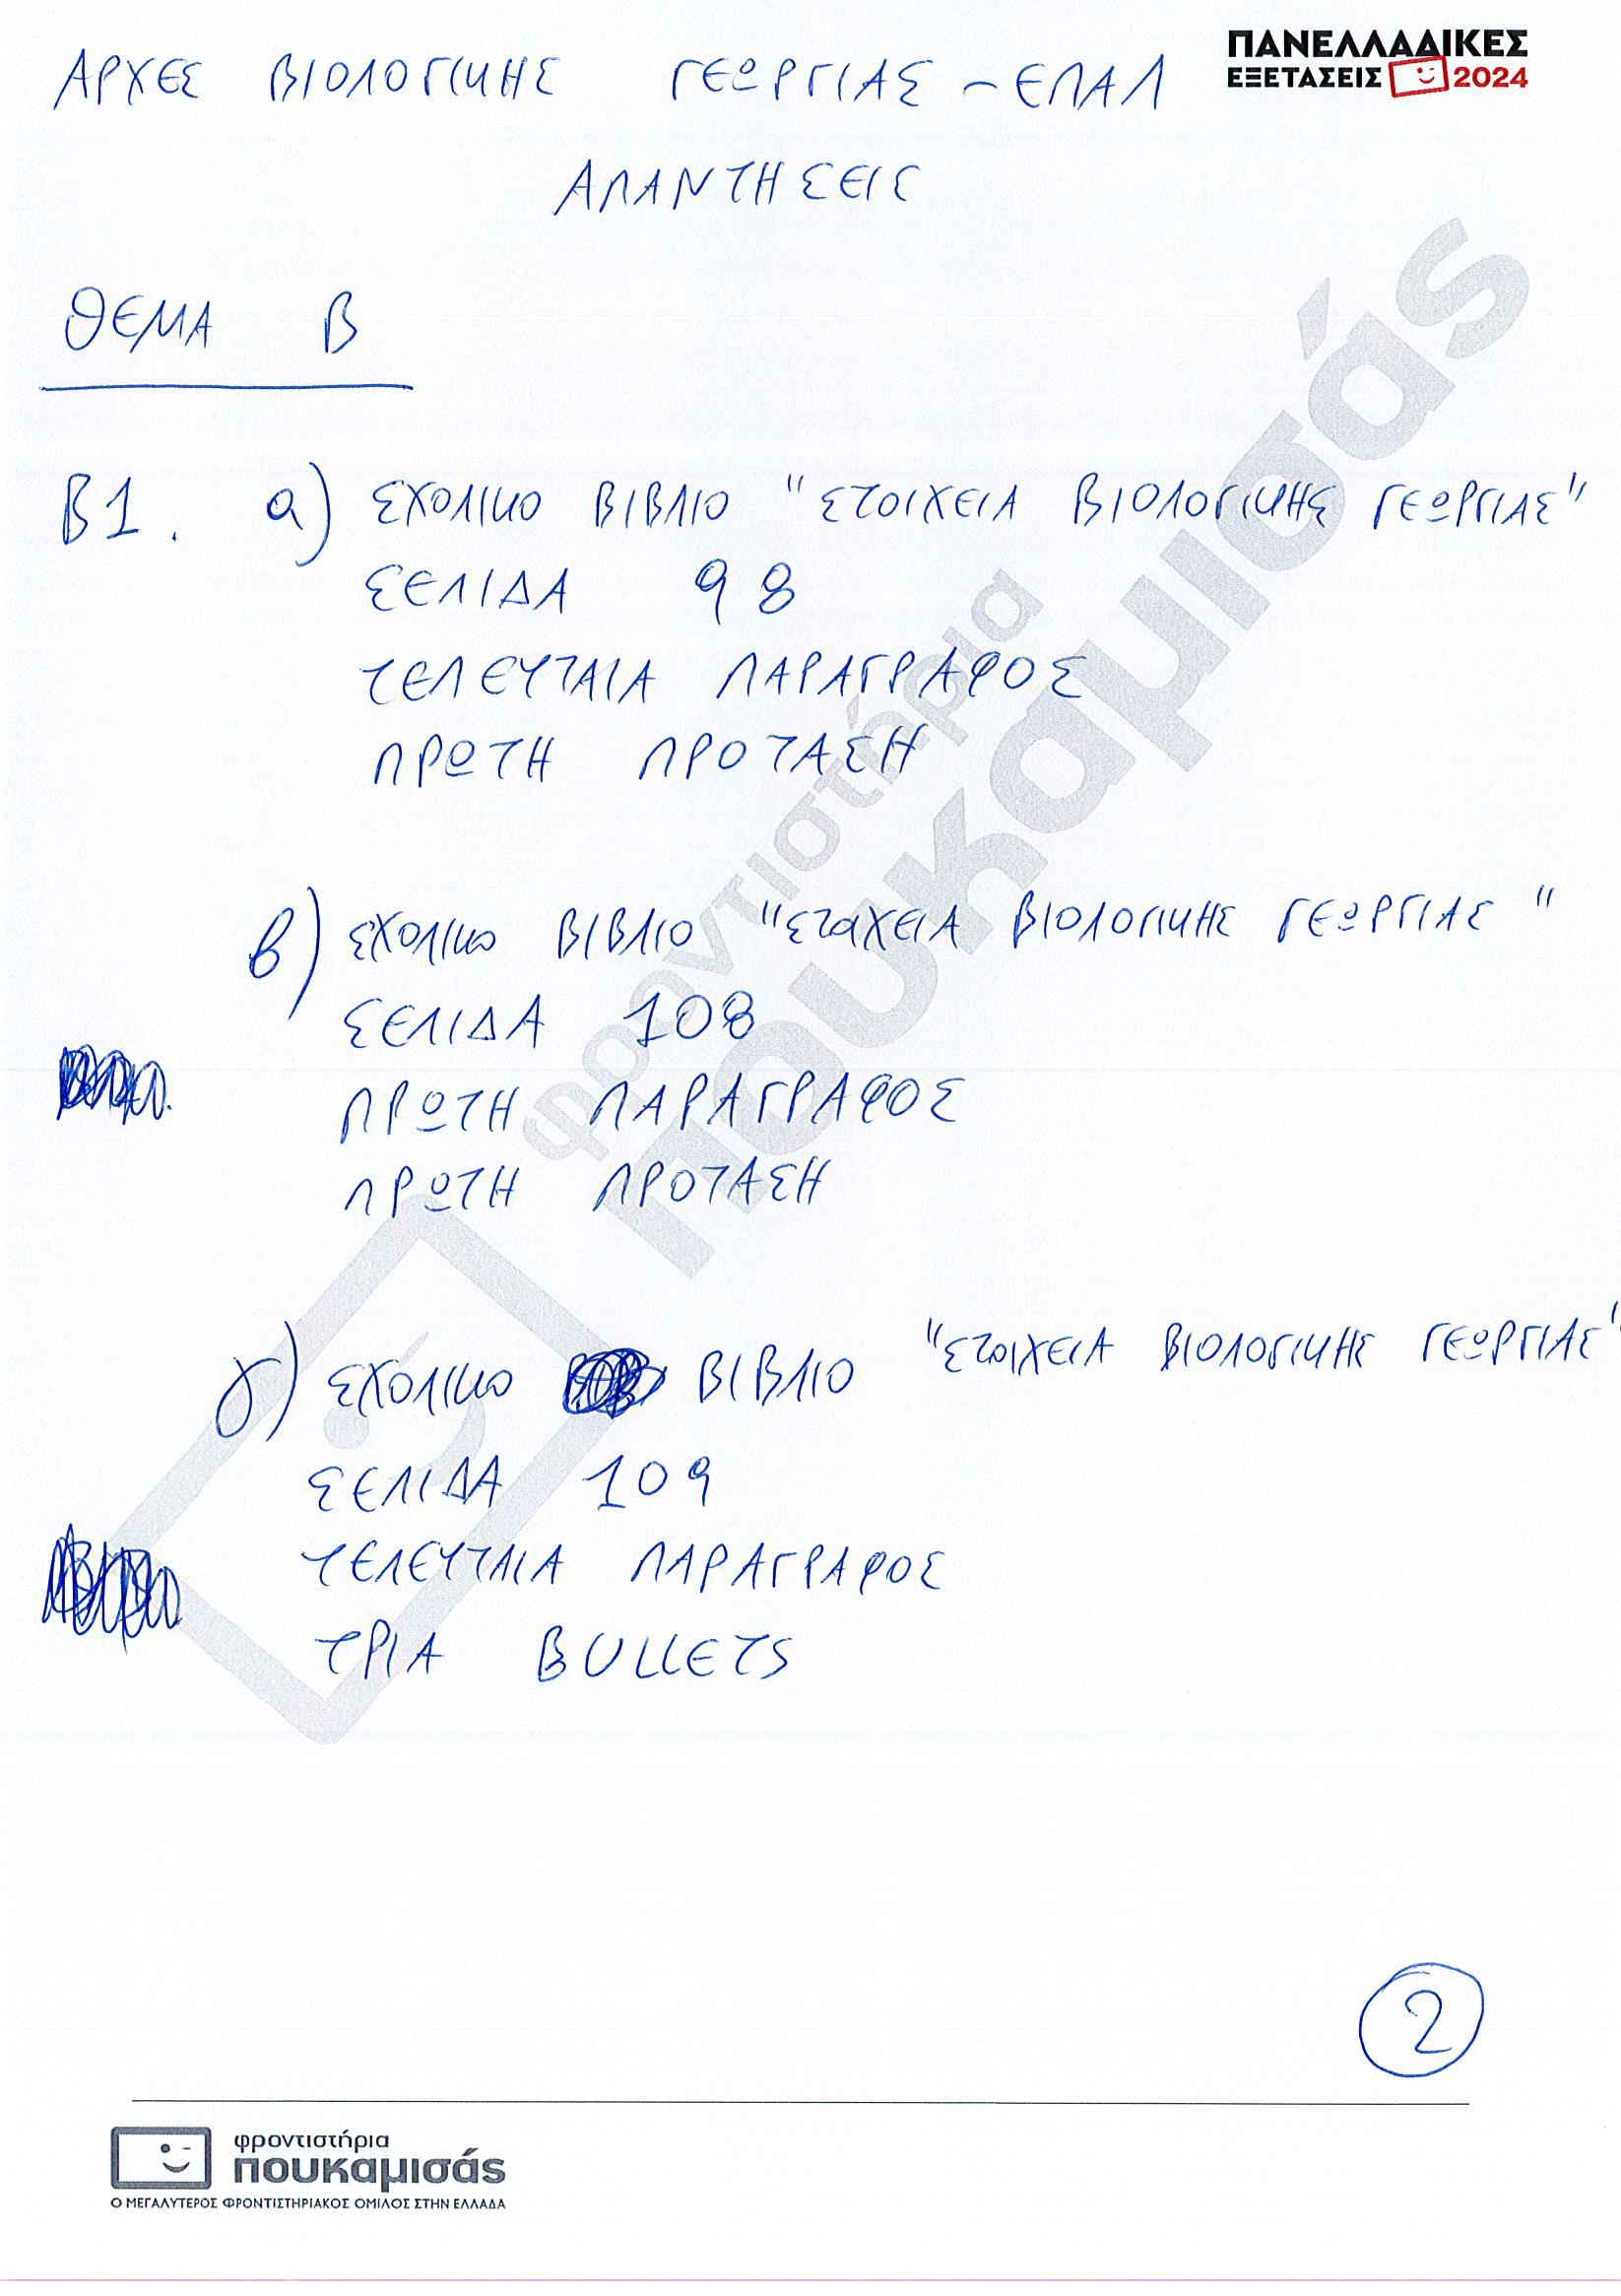 ΠΑΝΕΛΛΑΔΙΚΕΣ
ΕΞΕΤΑΣΕΙΣ 2024
ΑΡΧΕΣ ΒΙΟΛΟΓΙΚΗΣ ΓΕΩΡΓΙΑΣ - ΕΠΑΛ
ΑΠΑΝΤΗΣΕΙΣ
ΘΕΜΑ Β
Β1. α) ΣΧΟΛΙΚΟ ΒΙΒΛΙΟ "ΣΤΟΙΧΕΙΑ ΒΙΟΛΟΓΙΚΗΣ ΓΕΩΡΓΙΑΣ"
ΣΕΛΙΔΑ 98
ΤΕΛΕΥΤΑΙΑ ΠΑΡΑΓΡΑΦΟΣ
ΠΡΩΤΗ ΠΡΟΤΑΣΗ
β) ΣΧΟΛΙΚΟ ΒΙΒΛΙΟ "ΣΤΟΙΧΕΙΑ ΒΙΟΛΟΓΙΚΗΣ ΓΕΩΡΓΙΑΣ"
ΣΕΛΙΔΑ 108
ΠΡΩΤΗ ΠΑΡΑΓΡΑΦΟΣ
ΠΡΩΤΗ ΠΡΟΤΑΣΗ
γ) ΣΧΟΛΙΚΟ ΒΙΒΛΙΟ "ΣΤΟΙΧΕΙΑ ΒΙΟΛΟΓΙΚΗΣ ΓΕΩΡΓΙΑΣ"
ΣΕΛΙΔΑ 109
ΤΕΛΕΥΤΑΙΑ ΠΑΡΑΓΡΑΦΟΣ
ΤΡΙΑ BULLETS
2
φροντιστήρια
πουκαμισάς
φροντιστήρια
πουκαμισάς
Ο ΜΕΓΑΛΥΤΕΡΟΣ ΦΡΟΝΤΙΣΤΗΡΙΑΚΟΣ ΟΜΙΛΟΣ ΣΤΗΝ ΕΛΛΑΔΑ